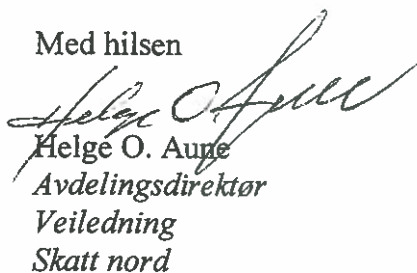 Med hilsen
Helge O. Aune
Helge O. Aune
Avdelingsdirektør
Veiledning
Skatt nord